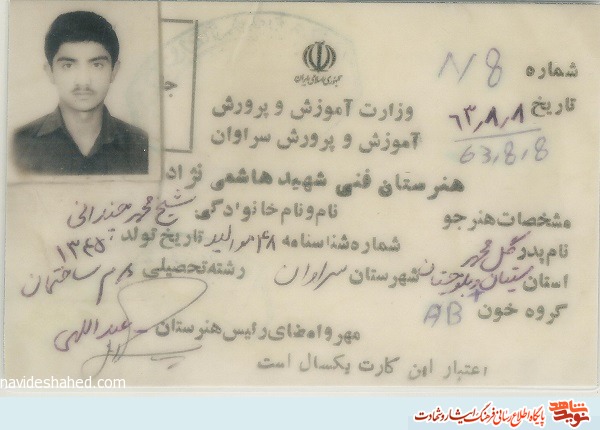 جمهوری اسلامی ایران
شماره N 8
تاریخ ۶۳،۸،۸
63,8,8
وزارت آموزش و پرورش
آموزش و پرورش سراوان
هنرستان فنی شهید هاشمی نژاد
مشخصات هنرجو
نام و نام خانوادگی شیخ محمد
نام پدر گل محمد شماره شناسنامه ۴۸ تاریخ تولد ۱۳۴۵
استان سیستان و بلوچستان شهرستان سراوان رشته تحصیلی ساختمان
گروه خون AB
مهر و امضای رئیس هنرستان عبداللهی
اعتبار این کارت یکسال است
navideshahed.com
نوید شاهد پایگاه اطلاع رسانی فرهنگ ایثار و شهادت